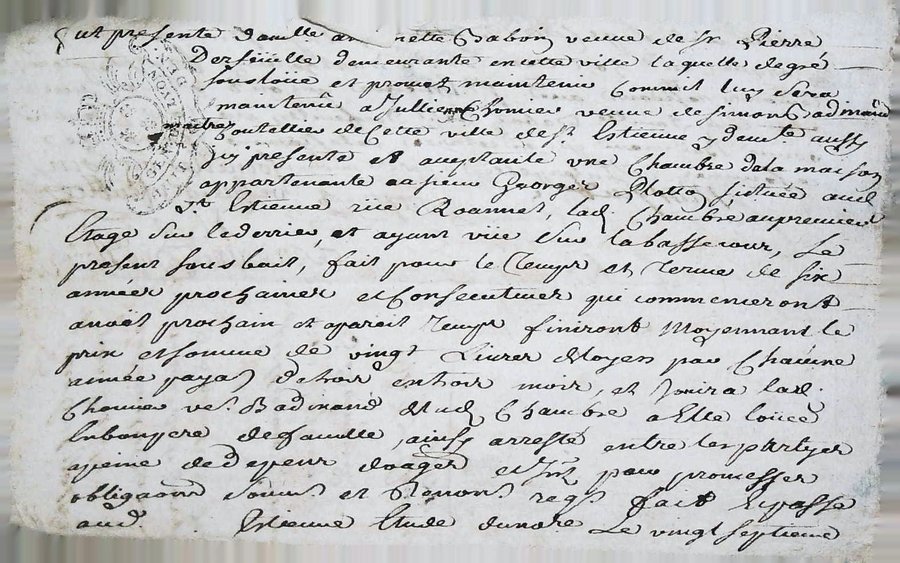 fut presente damlle an nette Chabon veuve de Sr Pierre
Derfeüille demeurante en cette ville laquelle de gré
sousloüe et promet maintenir comme luy sera
maintenu a Jullienne Chomier veuve de Simons Badinand
maitre Coutellier de cette ville de St Estienne y demte aussy
icy presente et aceptante une Chambre de la maison
appartenante au sieur George Platto située aud
St Estienne rüe Roannel, lad Chambre au premier
Etage sur le derrier, et ayant vüe sur la bassecour, Le
present sousbail, fait pour le temps et terme de six
années prochaines et Consecutives qui commenceront
a noel prochain et apareil temps finiront Moyennant le
prix et somme de vingt Livres Moyen par Chacune
année payab de trois en trois mois, et Jouira lad.
Chomier ve. Badinand de lad Chambre a Elle loüée
En bon pere de famille, ainsy arresté entre les partyes
a peine de depens domages et Int par promesses
obligaons soumis et Renons reqs fait Et passé
aud. Estienne Etude du nore Le vingt septieme